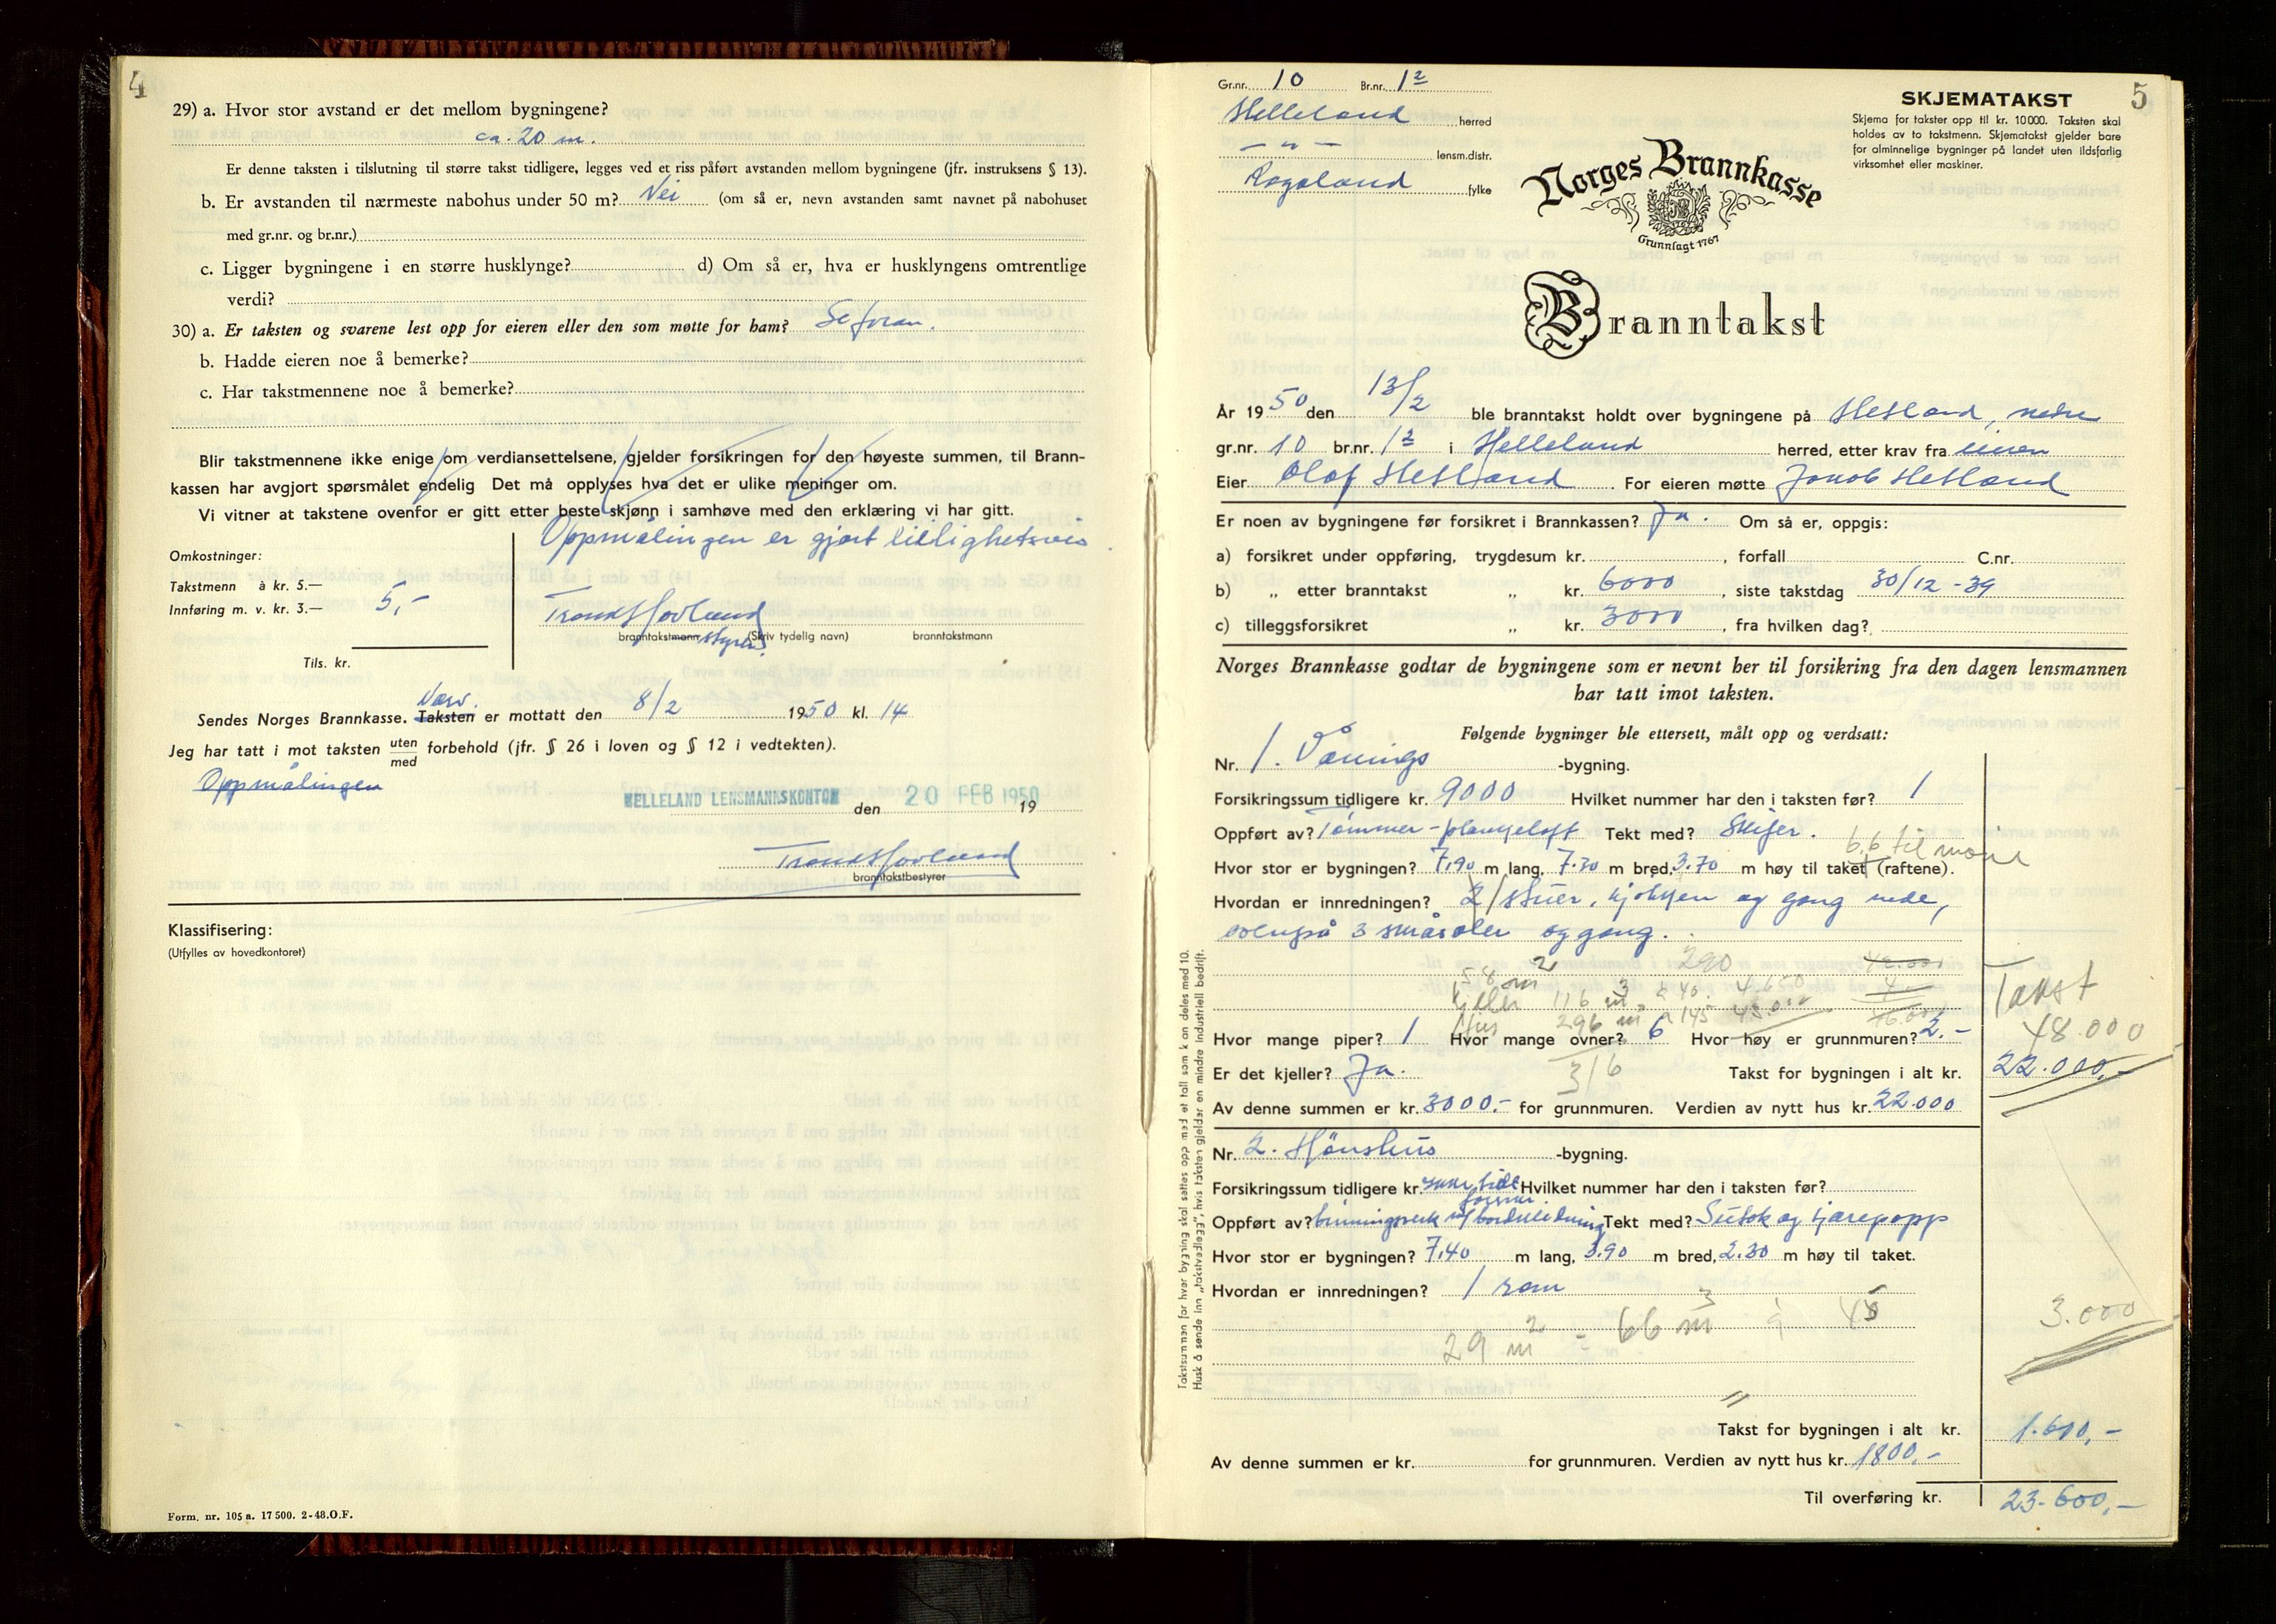 4
29) a. Hvor stor avstand er det mellom bygningene?
ca. 20 m.
Er denne taksten i tilslutning til større takst tidligere, legges ved et riss påført avstanden mellom bygningene (jfr. instruksens § 13).
b. Er avstanden til nærmeste nabohus under 50 m? Nei (om så er, nevn avstanden samt navnet på nabohuset
med gr.nr. og br.nr.)
c. Ligger bygningene i en større husklynge? d) Om så er, hva er husklyngens omtrentlige
verdi?
30) a. Er taksten og svarene lest opp for eieren eller den som møtte for ham? Se foran.
b. Hadde eieren noe å bemerke?
c. Har takstmennene noe å bemerke?
Blir takstmennene ikke enige om verdiansettelsene, gjelder forsikringen for den høyeste summen, til Brann-
kassen har avgjort spørsmålet endelig Det må opplyses hva det er ulike meninger om.
Vi vitner at takstene ovenfor er gitt etter beste skjønn i samhøve med den erklæring vi har gitt.
Oppmålingen er gjort lillighetsvis
Omkostninger:
Takstmenn à kr. 5.—
Innføring m. v. kr. 3.— 5,-
Trond Hovland
branntakstmann styrer. (Skriv tydelig navn) branntakstmann
Tils. kr.
Sendes Norges Brannkasse. Taksten er mottatt den 8/2 1950 kl. 14
Jeg har tatt i mot taksten uten
med forbehold (jfr. § 26 i loven og § 12 i vedtekten).
Oppmålingen
HELLELAND LENSMANNSKONTOR den 20 FEB 1950 19
Trond Hovland
branntakstbestyrer
Klassifisering:
(Utfylles av hovedkontoret)
Form. nr. 105 a. 17 500. 2-48. O.F.
5
Gr.nr. 10 Br.nr. 12
Helleland herred
- " - lensm.distr.
Rogaland fylke
SKJEMATAKST
Skjema for takster opp til kr. 10 000. Taksten skal
holdes av to takstmenn. Skjematakst gjelder bare
for alminnelige bygninger på landet uten ildsfarlig
virksomhet eller maskiner.
Norges Brannkasse
Grunnlagt 1767
Branntakst
År 1950 den 13/2 ble branntakst holdt over bygningene på Hetland, nedre
gr.nr. 10 br.nr. 12 i Helleland herred, etter krav fra eieren
Eier Olaf Hetland. For eieren møtte Jonob Hetland
Er noen av bygningene før forsikret i Brannkassen? Ja. Om så er, oppgis:
a) forsikret under oppføring, trygdesum kr. , forfall C.nr.
b) „ etter branntakst „ kr. 6000, siste takstdag 30/12-39
c) tilleggsforsikret „ kr. 3000, fra hvilken dag?
Norges Brannkasse godtar de bygningene som er nevnt her til forsikring fra den dagen lensmannen
har tatt imot taksten.
Følgende bygninger ble ettersett, målt opp og verdsatt:
Nr. 1. Vånings -bygning.
Forsikringssum tidligere kr. 9000 Hvilket nummer har den i taksten før? 1
Oppført av? Tømmer-plankeloft Tekt med? Skifer.
6,6 til møne
Hvor stor er bygningen? 7,90 m lang, 7.30 m bred, 3.70 m høy til taket (raftene).
Hvordan er innredningen? 2 stuer, kjøkken og gang nede,
ovenpå 3 småsaler og gang.
58 m2 290
Kjeller 116 m3 à 40. 4.650
Hus 296 m3 à 145 43.000
Takst
48.000
Hvor mange piper? 1 Hvor mange ovner? 6 Hvor høy er grunnmuren? 2,-
316
Er det kjeller? Ja. Takst for bygningen i alt kr. 22.000,-
Av denne summen er kr. 3000.- for grunnmuren. Verdien av nytt hus kr. 22.000
Nr. 2. Hønshus -bygning.
Forsikringssum tidligere kr. Hvilket nummer har den i taksten før?
Oppført av? binningsverk m/ bordkledning Tekt med? Sutak og tjærepapp
Hvor stor er bygningen? 7,40 m lang, 3.90 m bred, 2.30 m høy til taket.
Hvordan er innredningen? 1 rom
29 m2 = 66 m3 à 45
3.000
Takst for bygningen i alt kr. 1.600,-
Av denne summen er kr. for grunnmuren. Verdien av nytt hus kr. 1800,-
Til overføring kr. 23.600,-
Takstsummen for hver bygning skal settes opp med et tall som kan deles med 10.
Husk å sende inn „takstvedlegg", hvis taksten gjelder en mindre industriell bedrift.